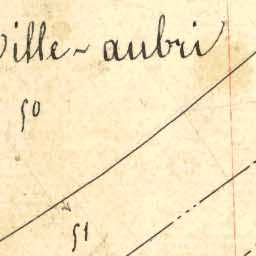 ville-aubri
50
51